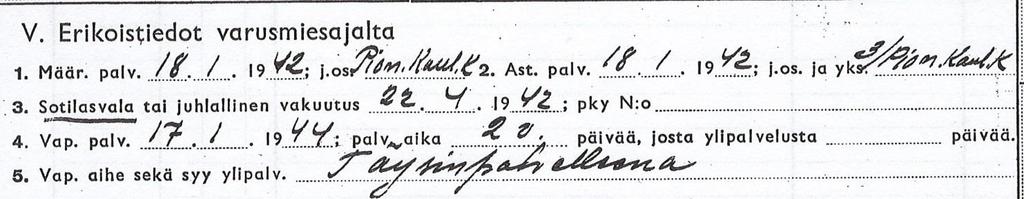 V. Erikoistiedot varusmiesajalta
1. Määr. palv. 18. 1. 1942; j.os. Pion.Koul.K 2. Ast. palv. 18. 1. 1942; j.os. ja yks. 3/Pion.Koul.K
3. Sotilasvala tai juhlallinen vakuutus 22. 4. 1942; pky N:o
4. Vap. palv. 17. 1. 1944; palv. aika 2 v. päivää, josta ylipalvelusta päivää.
5. Vap. aihe sekä syy ylipalv. Täysinpalvelleena